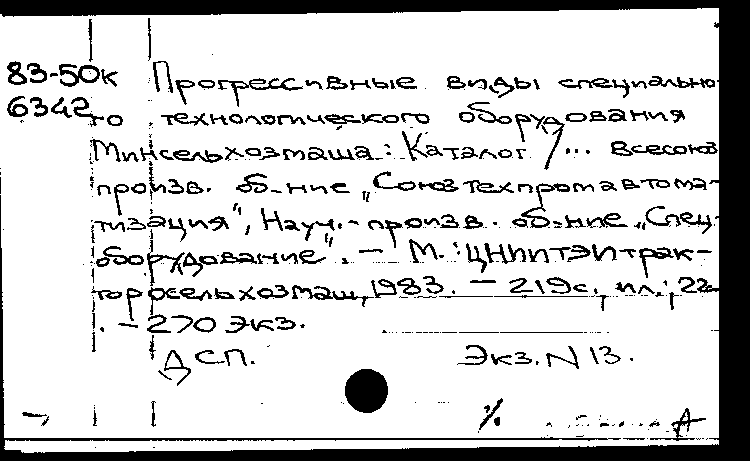 83-50к Прогрессивные виды специально-
6342 го технологического оборудования
Минсельхозмаша: Каталог /... Всесоюз.
произв. об-ние „Союзтехпромавтома-
тизация", Науч.-произв. об-ние „Спец-
оборудование". — М.: ЦНИИТЭИтрак-
торосельхозмаш, 1983. — 219с., ил.; 22
. — 270 экз.
ДСП. Экз. N 13.